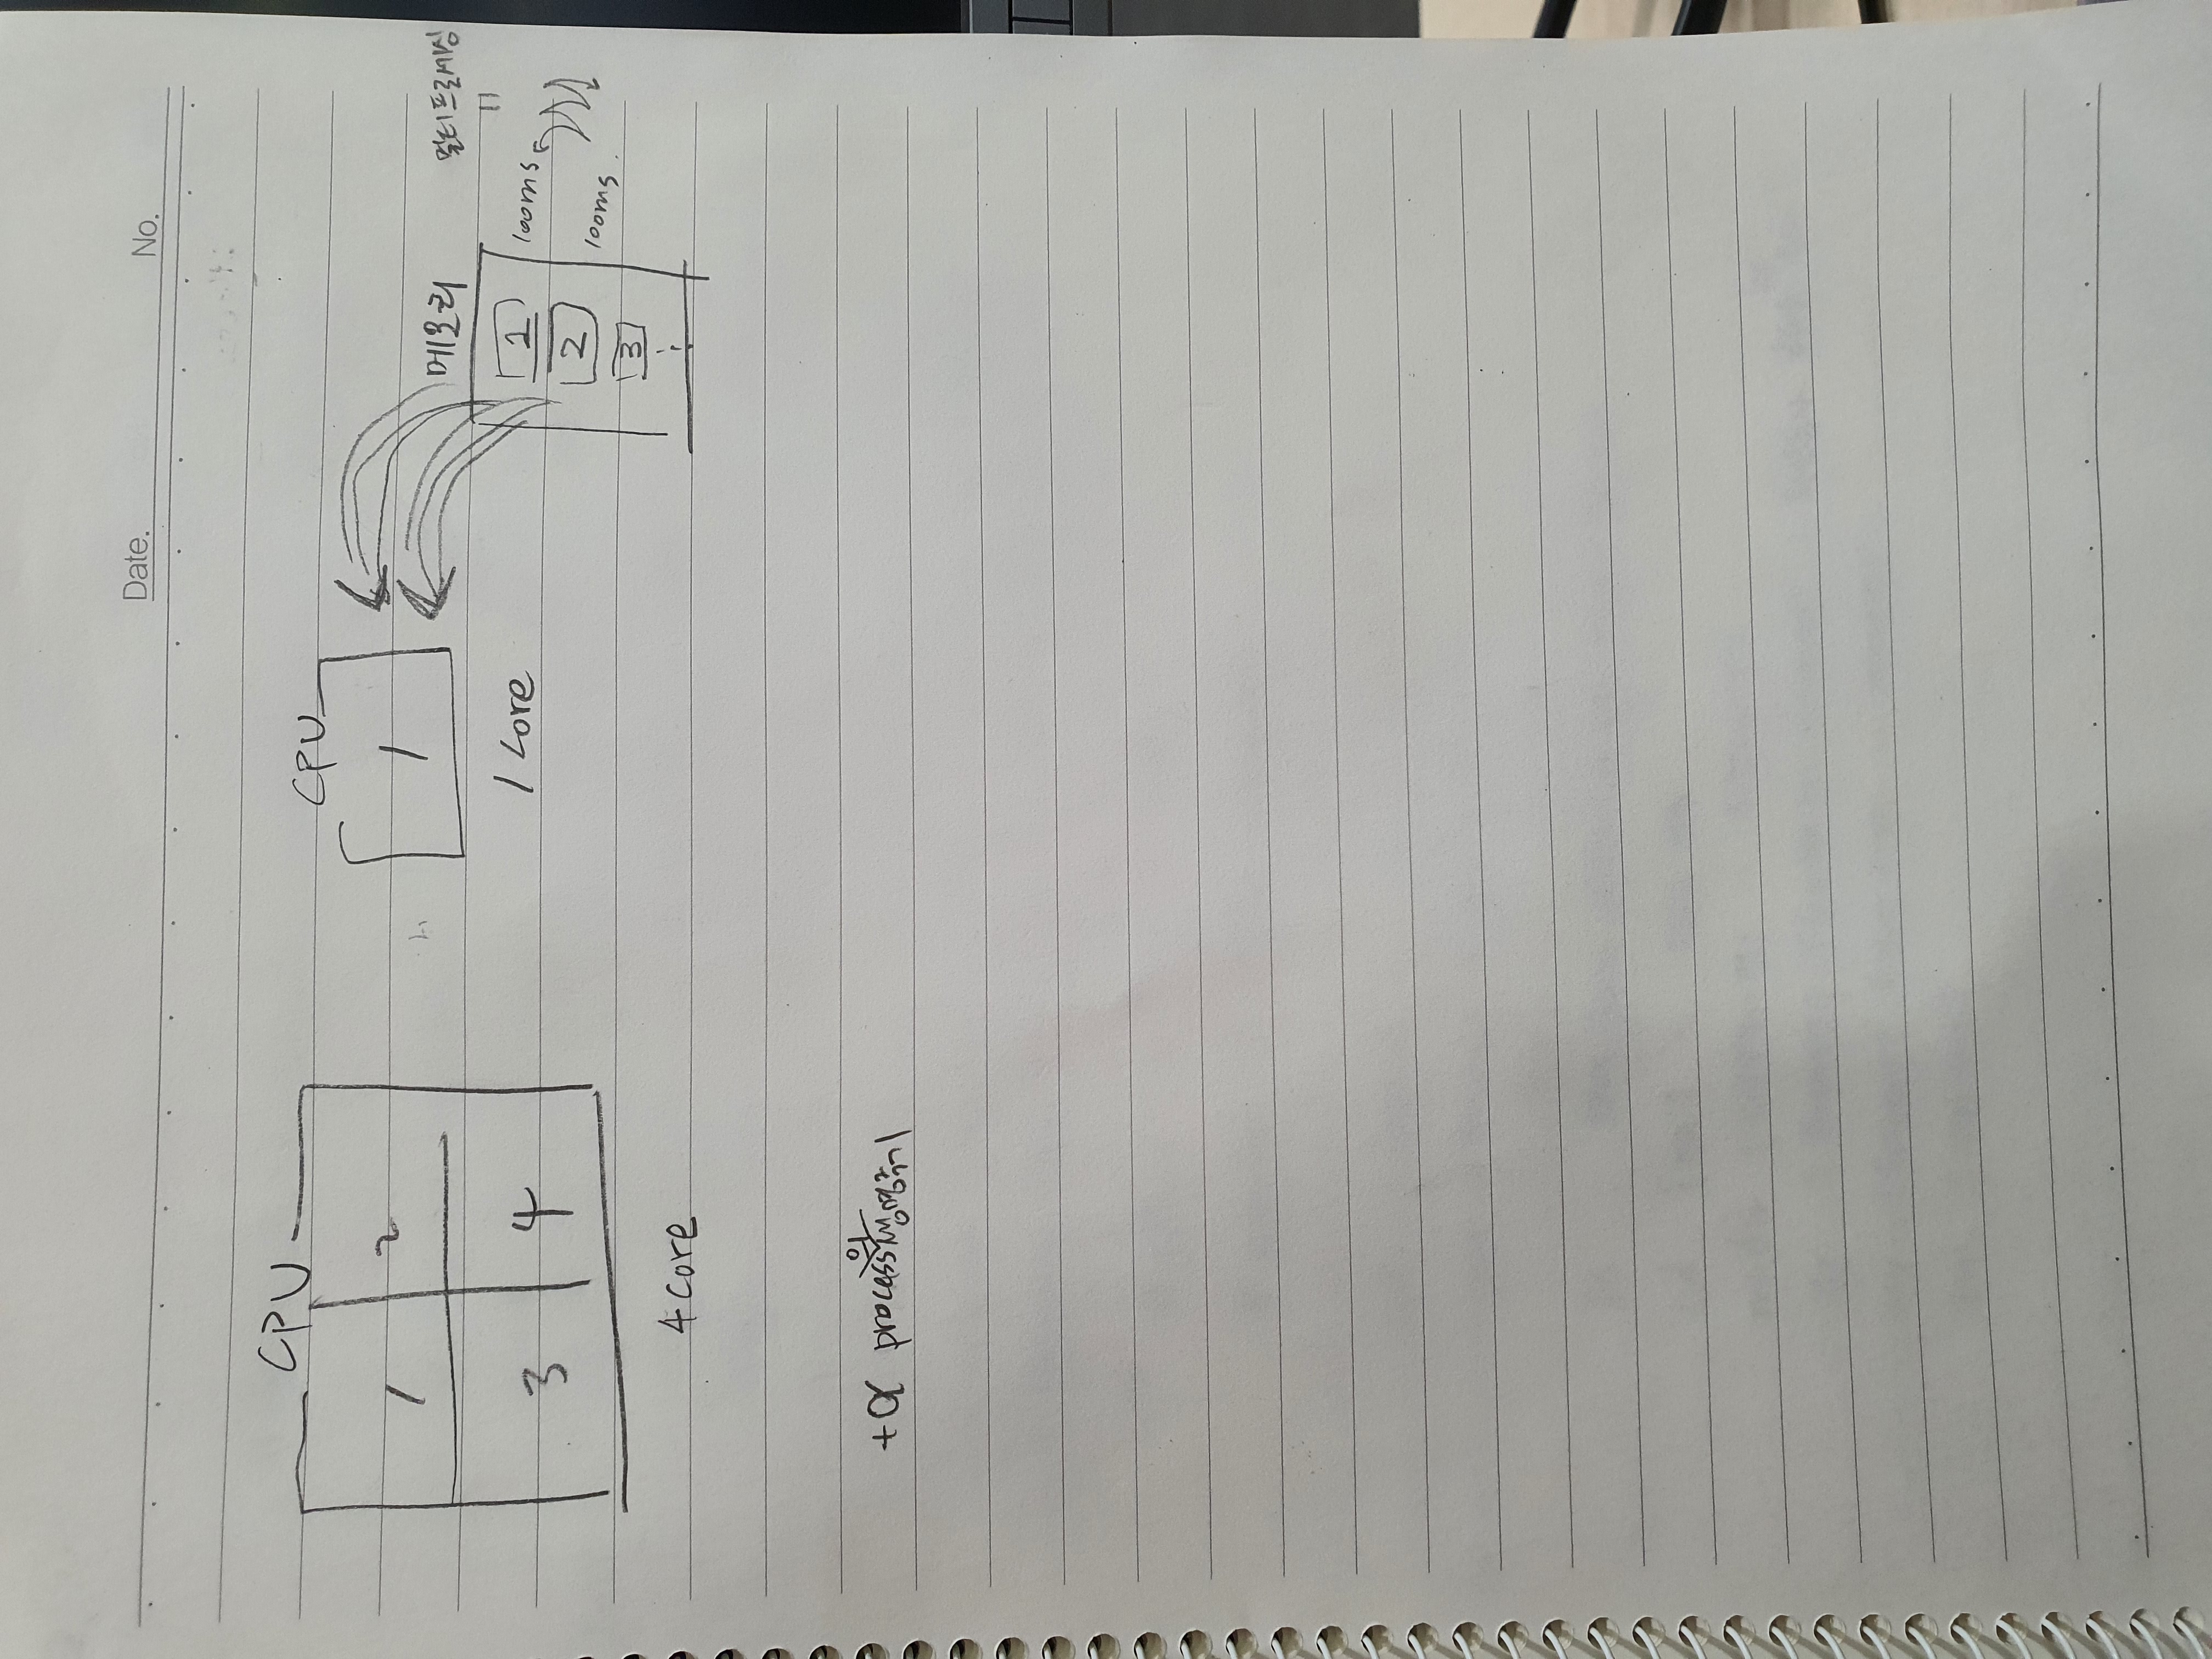 Date. No.
CPU
1 2
3 4
4 core
CPU
1
1 core
메모리
1
2
3
100ms
100ms.
멀티프로세싱
+α process의